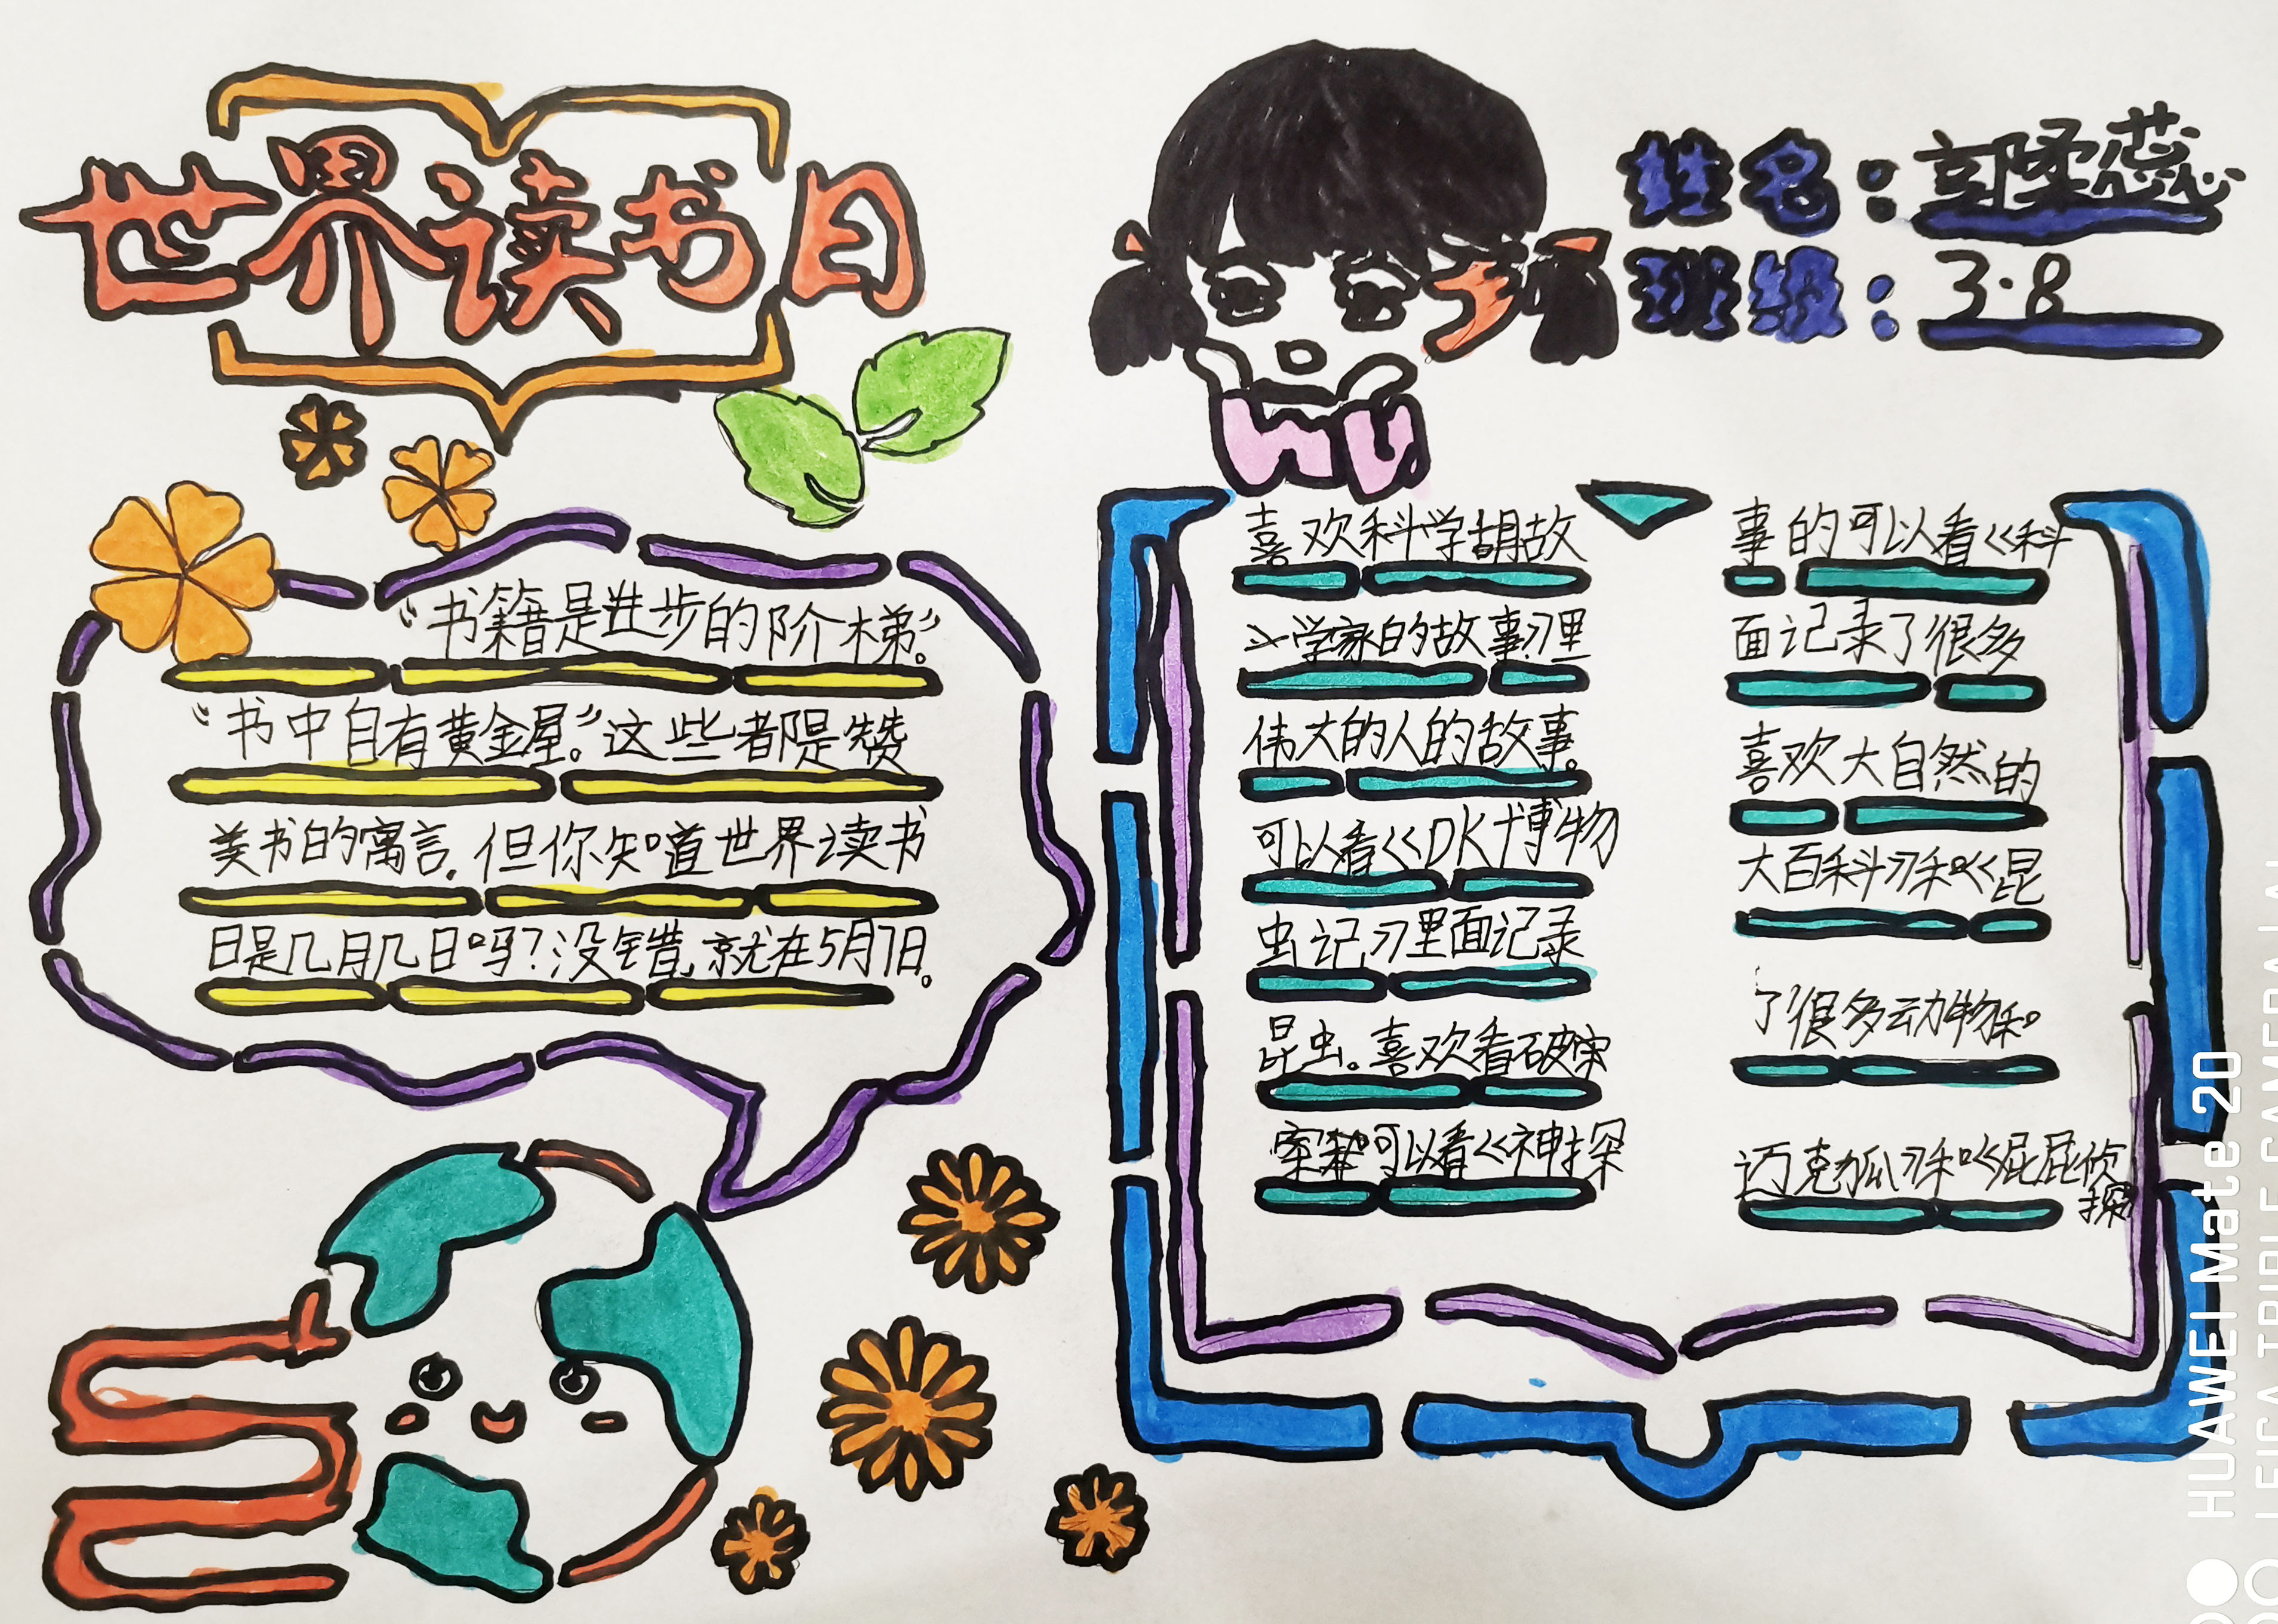 世界读书日
姓名：郭柔蕊
班级：3·8
“书籍是进步的阶梯”。
“书中自有黄金屋”。这些都是赞
美书的寓言．但你知道世界读书
日是几月几日吗？没错，就在5月7日。
喜欢科学胡故
学家的故事》里
伟大的人的故事。
可以看《DK博物
虫记》里面记录
昆虫。喜欢看破案
案和可以看《神探
事的可以看《科
面记录了很多
喜欢大自然的
大百科》和《昆
了很多动物和
迈克狐》和《屁屁侦
探
HUAWEI Mate 20